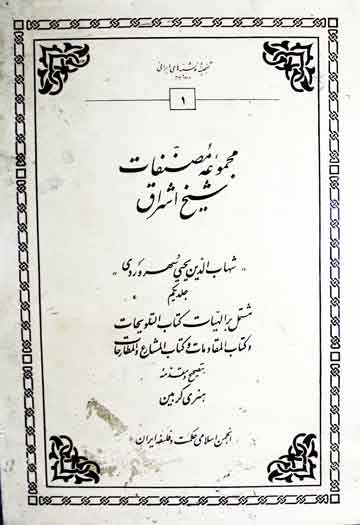 ۱
مجموعهٔ مُصنّفات
شیخ اشراق
« شهاب الدین یحیی سهروردی »
جلد یکم
مشتمل بر الهیات کتاب التلویحات
و کتاب المقاومات و کتاب المشارع و المطارحات
بتصحیح و مقدمه
هنری کربین
انجمن اسلامی حکمت و فلسفه ایران